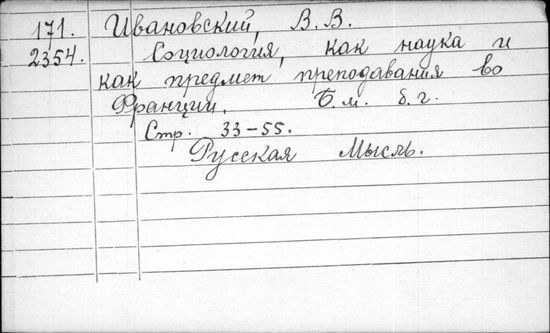 171. Ивановский, В. В.
2354. Социология, как наука и
как предмет преподавания во
Франции. Б. м. б. г.
Стр. 33-55.
Русская Мысль.